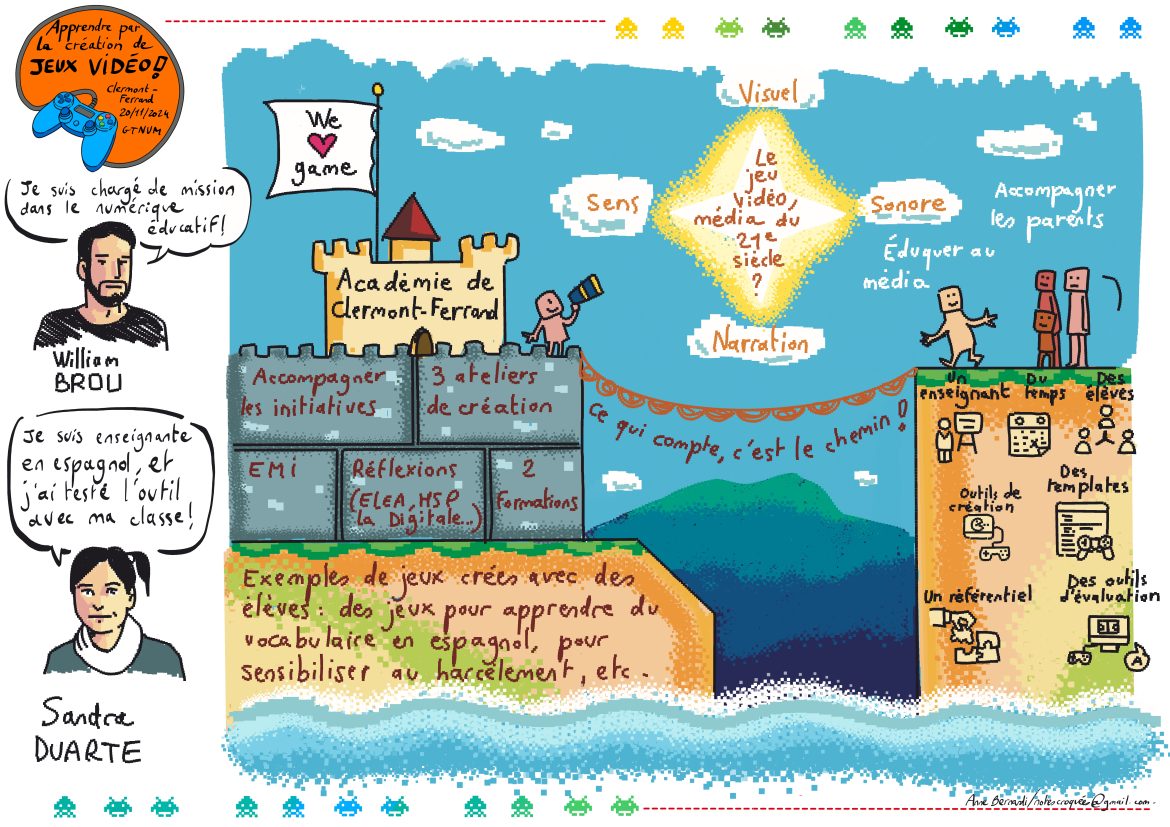 Apprendre par
la création de
JEUX VIDÉO!
Clermont-
Ferrand
20/11/2024
GTNUM
Je suis chargé de mission
dans le numérique
éducatif!
William
BROU
Je suis enseignante
en espagnol, et
j'ai testé l'outil
avec ma classe!
Sandra
DUARTE
We
game
Académie de
Clermont-Ferrand
Accompagner
les initiatives
3 ateliers
de création
EMi
Réflexions
(ELEA, HSP
la Digitale...)
2
Formations
Exemples de jeux crées avec des
élèves : des jeux pour apprendre du
vocabulaire en espagnol, pour
sensibiliser au harcèlement, etc.
Visuel
Sens
Le
jeu
vidéo,
média du
21e
siècle
?
Sonore
Narration
Accompagner
les parents
Éduquer au
média
Ce qui compte, c'est le chemin!
Un
enseignant
Du
temps
Des
élèves
Outils de
création
Des
templates
Un référentiel
Des outils
d'évaluation
A
Anne Bernardi/notescroquees@gmail.com.